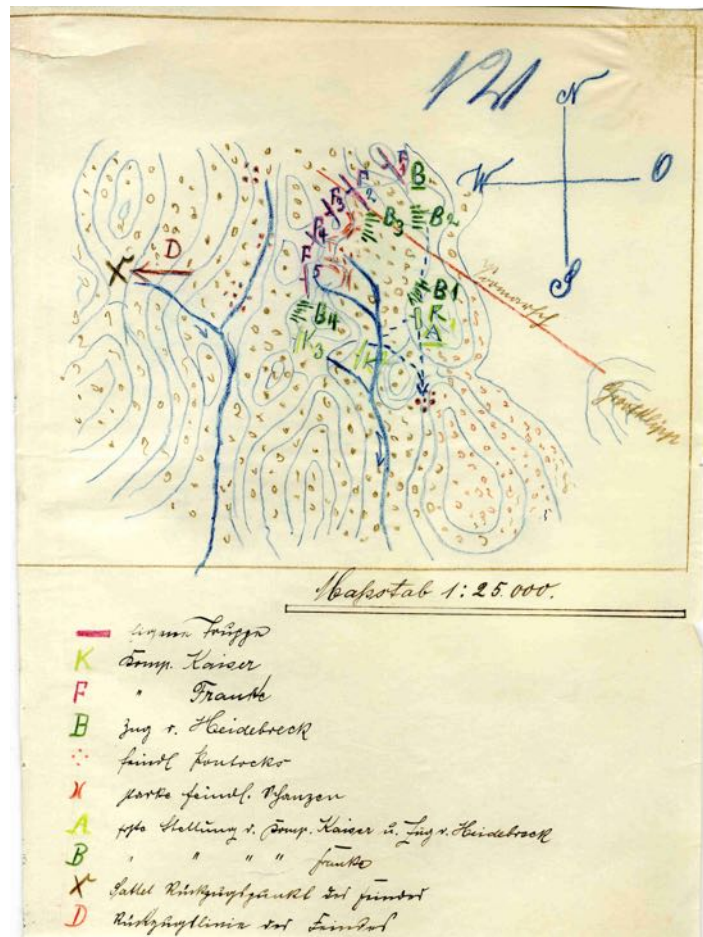 N
W O
S
F
F B
2
F3 B3 B2
F4
D F
X 5 B1
K
B4 A
K3 K2
Vormarsch
Großklipp
Maßstab 1:25.000.
eigene Truppe
K Komp. Kaiser
F " Franke
B Zug v. Heidebreck
feindl. Pontocks
starke feindl. Schanzen
A erste Stellung d. Komp. Kaiser u. Zug v. Heidebreck
B " " " " Franke
X Sattel Rückzugspunkt des Feindes
D Rückzugslinie des Feindes